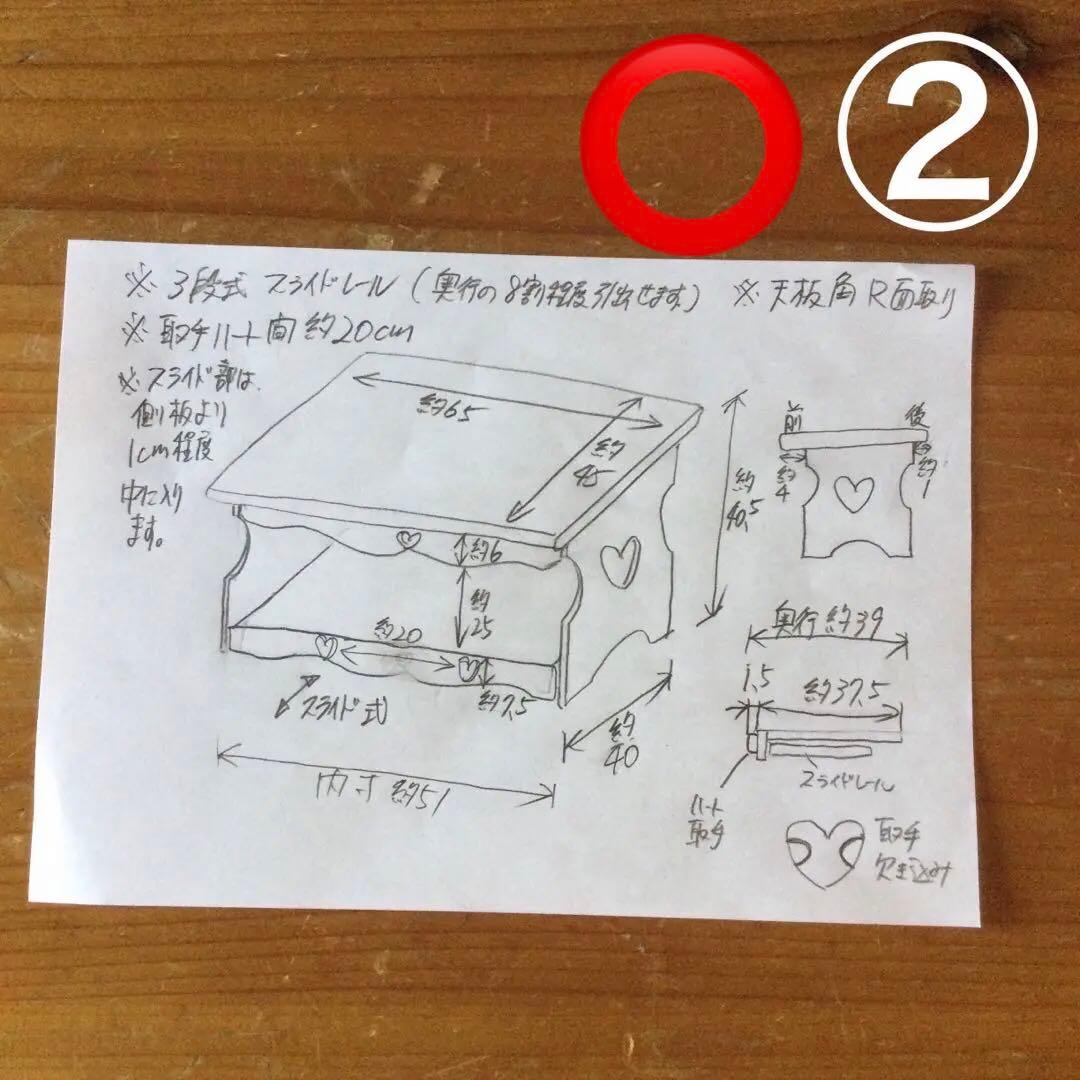 ②
※ 3段式 スライドレール (奥行の8割程度引出せます)
※ 天板角 R面取り
※ 取手ハート間 約20cm
※ スライド部は、
側板より
1cm程度
中に入り
ます。
約65
約
45
約
40.5
約6
約
25
約20
約7.5
スライド式
内寸 約51
約
40
前
後
約
4
約
1
奥行約39
1.5
約37.5
スライドレール
ハート
取手
取手
欠き込み